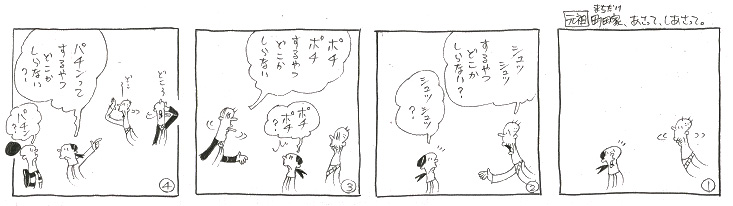 まちだけ
元祖 町田家、あさって、しあさって。
①
シュッ
シュッ
するやつ
どこか
しらない？
シュッ
シュッ
？
②
ポチ
ポチ
するやつ
どこか
しらない
ポチ
ポチ
？
③
どこ
パチンって
するやつ
どこか
しらない
？
パチン？
④